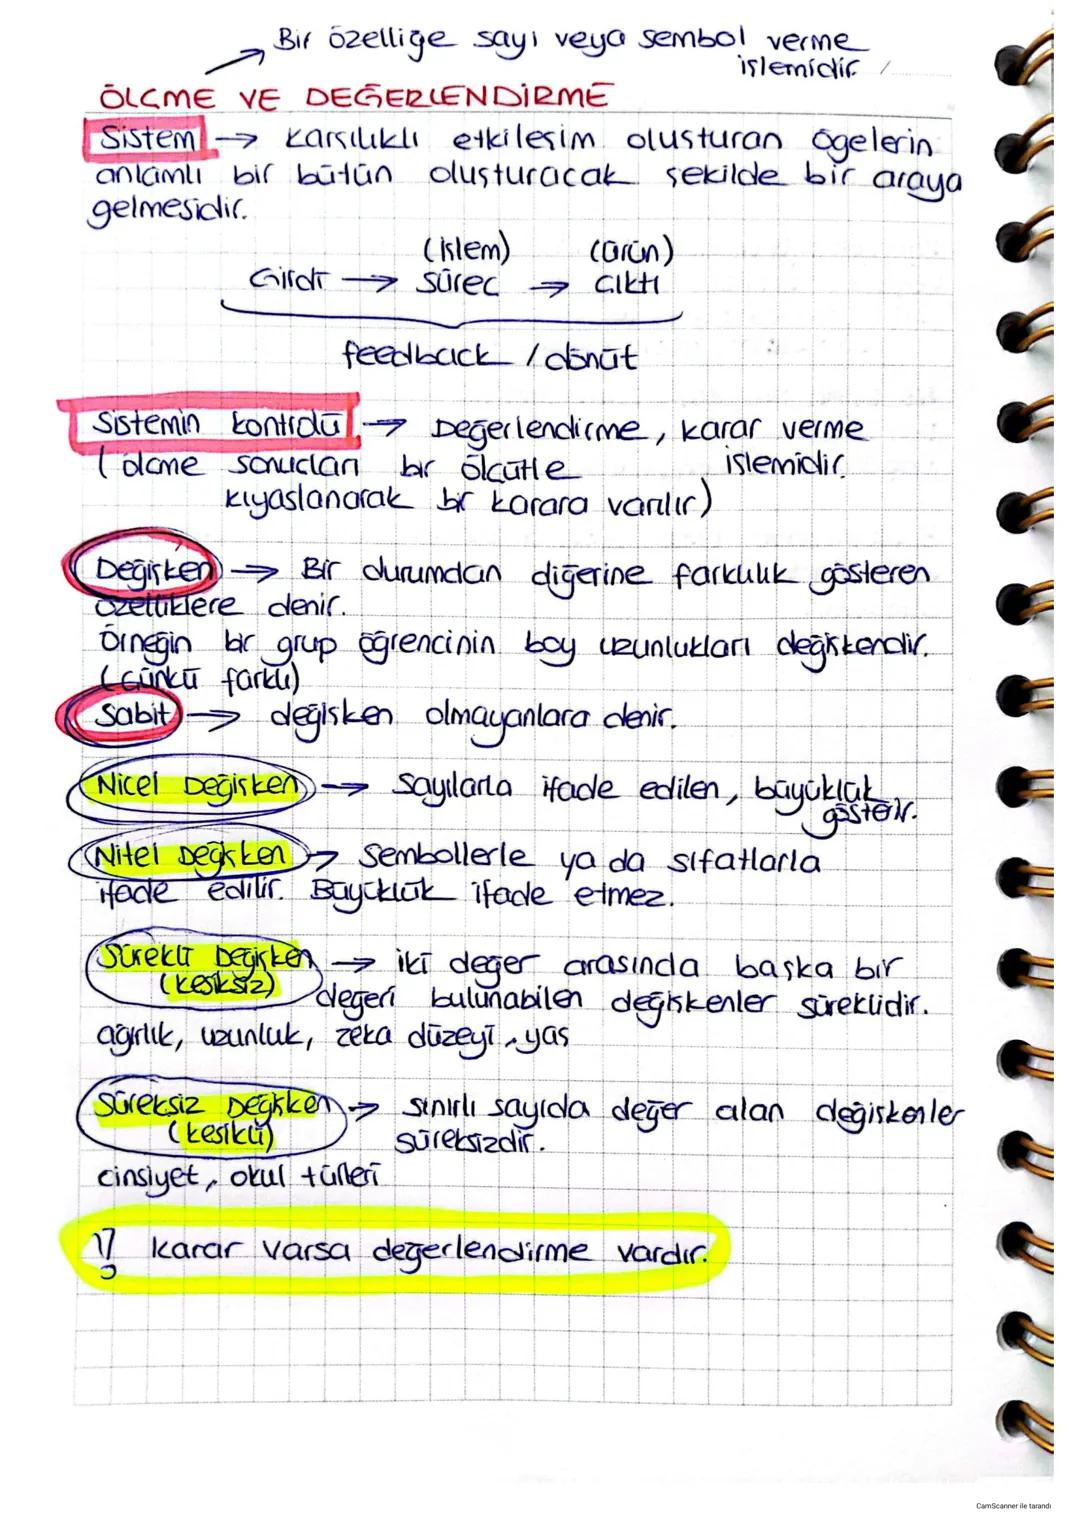 Bir özelliğe sayı veya sembol verme
işlemidir.
ÖLÇME VE DEĞERLENDİRME
Sistem → karşılıklı etkileşim oluşturan ögelerin
anlamlı bir bütün oluşturacak şekilde bir araya
gelmesidir.
(işlem) (ürün)
Girdi → süreç → çıktı
feedback / dönüt
Sistemin kontrolü → Değerlendirme, karar verme
işlemidir.
(ölçme sonuçları bir ölçütle
kıyaslanarak bir karara varılır)
Değişken → Bir durumdan diğerine farklılık gösteren
özelliklere denir.
Örneğin bir grup öğrencinin boy uzunlukları değişkendir.
(çünkü farklı)
Sabit → değişken olmayanlara denir.
Nicel Değişken → Sayılarla ifade edilen, büyüklük
gösterir.
Nitel Değişken → Sembollerle ya da sıfatlarla
ifade edilir. Büyüklük ifade etmez.
Sürekli Değişken → iki değer arasında başka bir
(kesiksiz) değeri bulunabilen değişkenler süreklidir.
ağırlık, uzunluk, zeka düzeyi, yaş
Süreksiz Değişken → sınırlı sayıda değer alan değişkenler
(kesikli) süreksizdir.
cinsiyet, okul türleri
!? Karar varsa değerlendirme vardır.
CamScanner ile tarandı